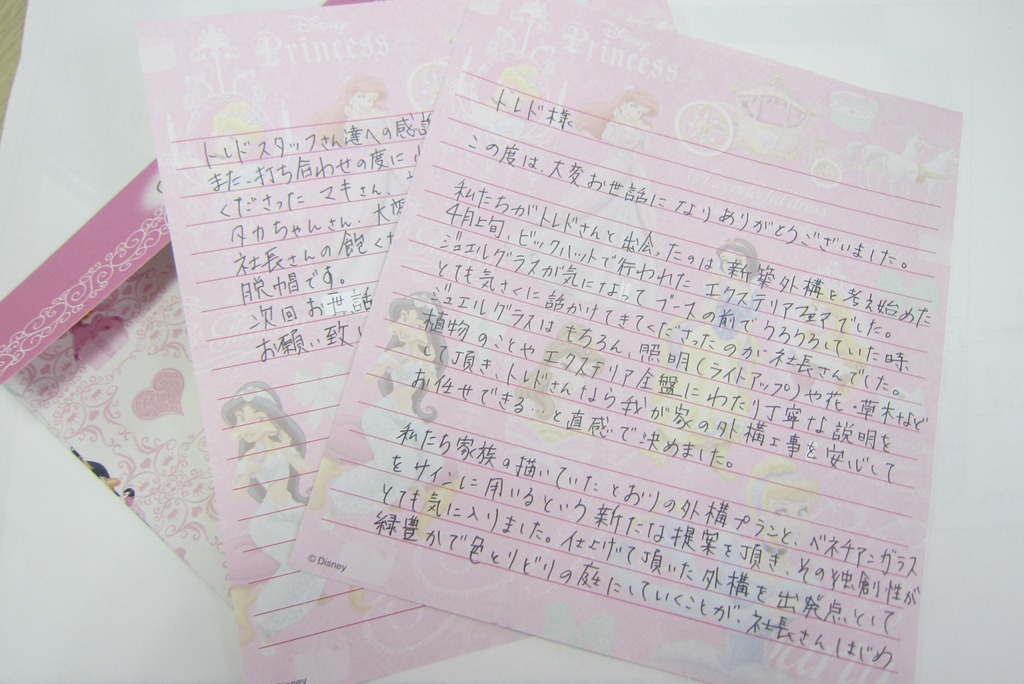 Disney
Princess
トレド様
この度は、大変お世話になりありがとうございました。
私たちがトレドさんと出会ったのは新築外構を考え始めた
4月上旬、ビックハットで行われたエクステリアフェアでした。
ジュエルグラスが気になってブースの前でうろうろしていた時
とても気さくに話かけてきてくださったのが社長さんでした。
ジュエルグラスはもちろん、照明(ライトアップ)や花・草木など
植物のことやエクステリア全盤にわたり丁寧な説明を
して頂き、トレドさんなら我が家の外構工事を安心して
お任せできる…と直感で決めました。
私たち家族の描いていたとおりの外構プランと、ベネチアンガラス
をサインに用いるという新たな提案を頂き、その独創性が
とても気に入りました。仕上げて頂いた外構を出発点として
緑豊かで色とりどりの庭にしていくことが、社長さんはじめ
©Disney
Disney
Princess
トレドスタッフさん達への感謝
また、打ち合わせの度に
くださった マキさん、
タカちゃんさん、大変
社長さんの飽く
脱帽です。
次回お世話
お願い致し
Disney